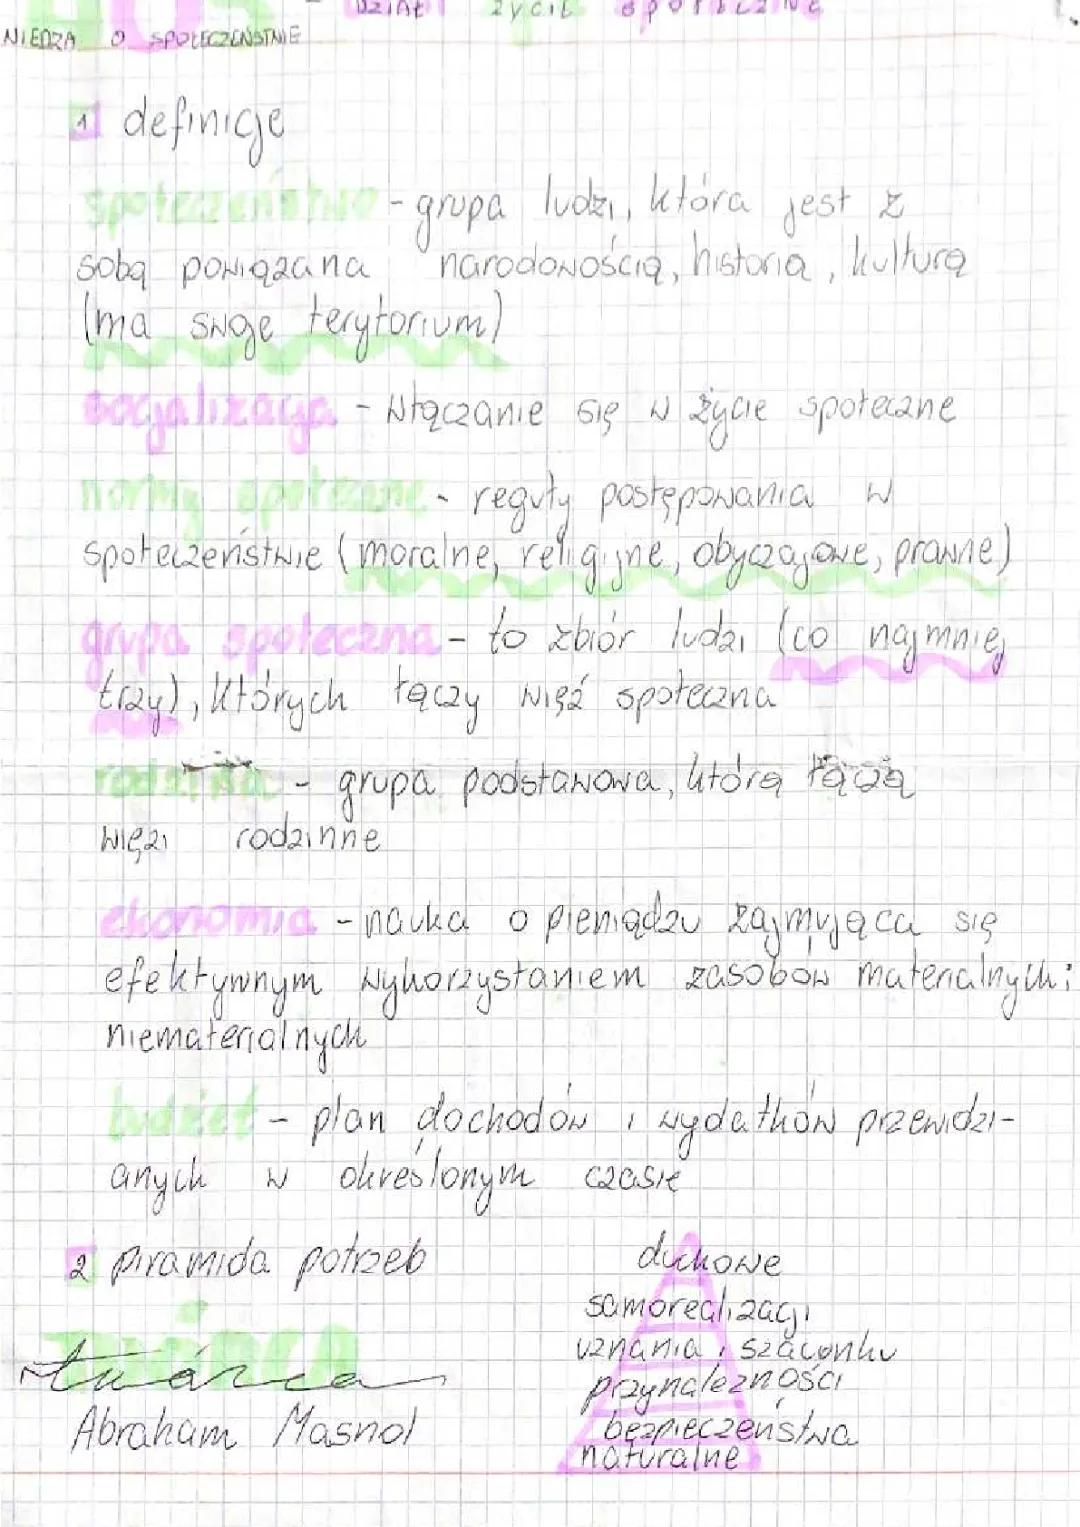 DZIAŁ życie społeczne
WIEDZA O SPOŁECZEŃSTWIE
1 definicje
społeczeństwo - grupa ludzi, która jest z
sobą powiązana narodowością, historią, kulturą
(ma swoje terytorium)
socjalizacja - włączanie się w życie społeczne
normy społeczne - reguły postępowania w
społeczeństwie (moralne, religijne, obyczajowe, prawne)
grupa społeczna - to zbiór ludzi (co najmniej
trzy), których łączy więź społeczna
rodzina - grupa podstawowa, którą łączą
więzi rodzinne
ekonomia - nauka o pieniądzu zajmująca się
efektywnym wykorzystaniem zasobów materialnych i
niematerialnych
budżet - plan dochodów i wydatków przewidzi-
anych w określonym czasie
2 piramida potrzeb
duchowe
samorealizacji
uznania i szacunku
przynależności
bezpieczeństwa
naturalne
twórca
Abraham Masnol